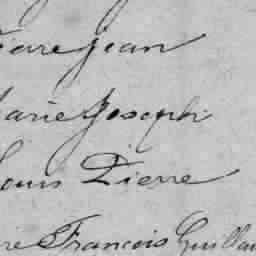 Pierre jean
Marie Joseph
Louis Pierre
re François Guillau